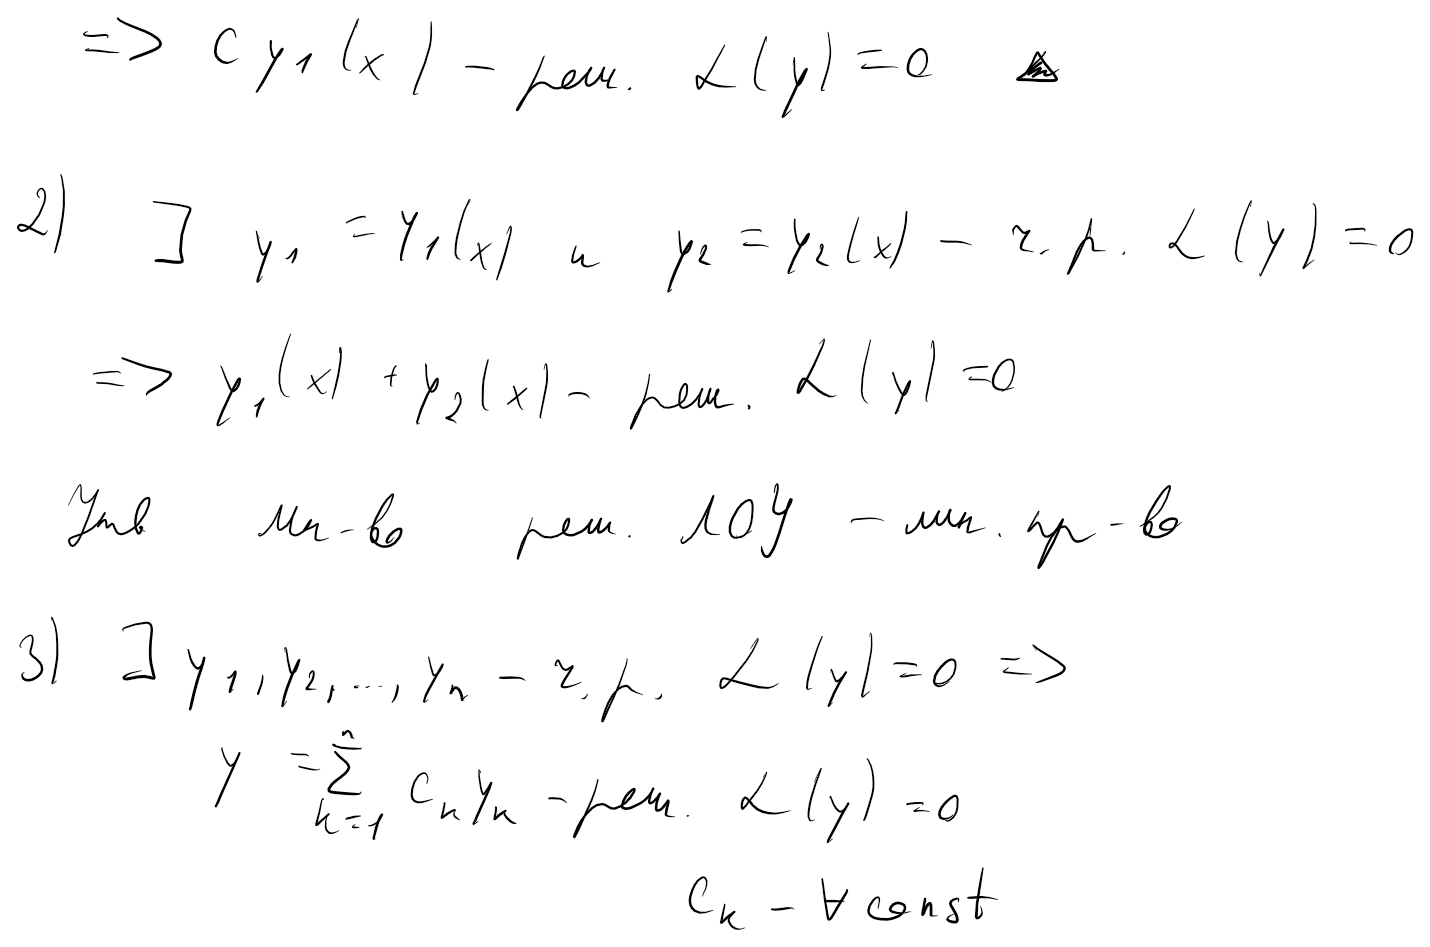 => C y₁(x) – реш. L(y)=0
2) ] y₁ = y₁(x) и y₂ = y₂(x) – ч. р. L(y)=0
=> y₁(x) + y₂(x) – реш. L(y)=0
Утв мн-во реш. ЛОУ – лин. пр-во
3) ] y₁, y₂, ..., yₙ – ч. р. L(y)=0 =>
y = ∑ₖ₌₁ⁿ Cₖ yₖ – реш. L(y)=0
Cₖ – ∀ const